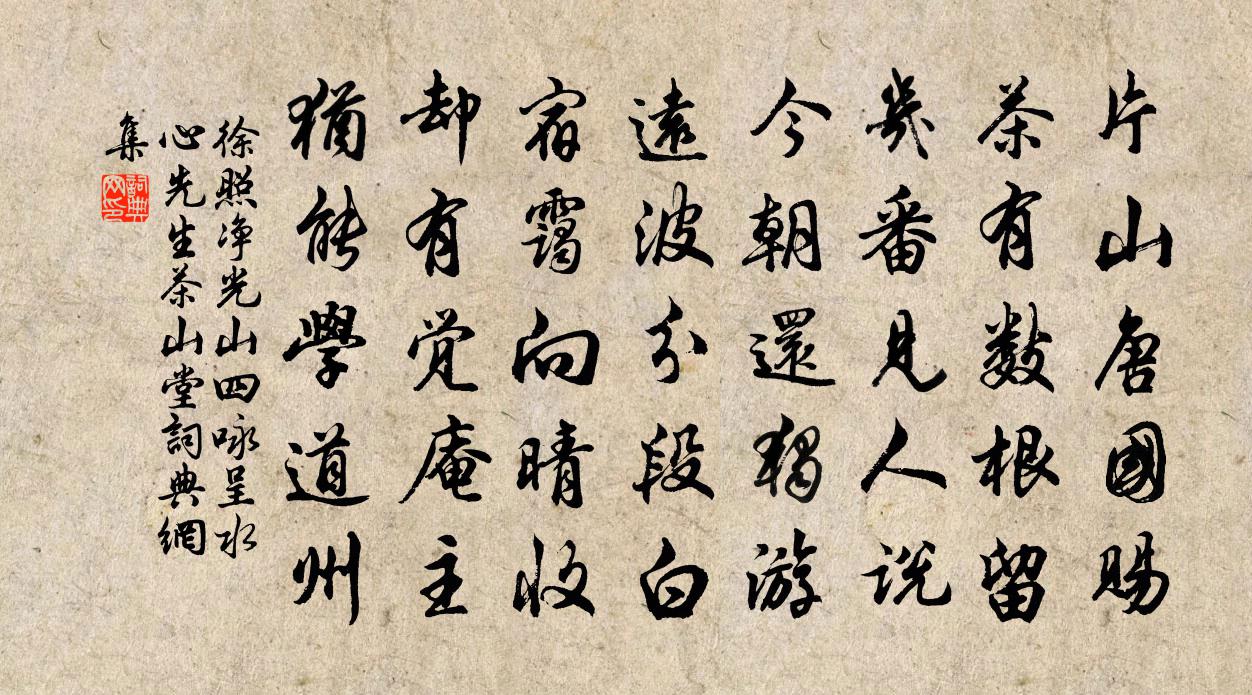 片山唐國賜
茶有數根留
幾番見人説
今朝還獨游
遠波分段白
宿靄向晴收
却有覚庵主
猶能學道州
徐照净光山四咏呈水
心先生茶山堂詞典網
集
詞典
网印